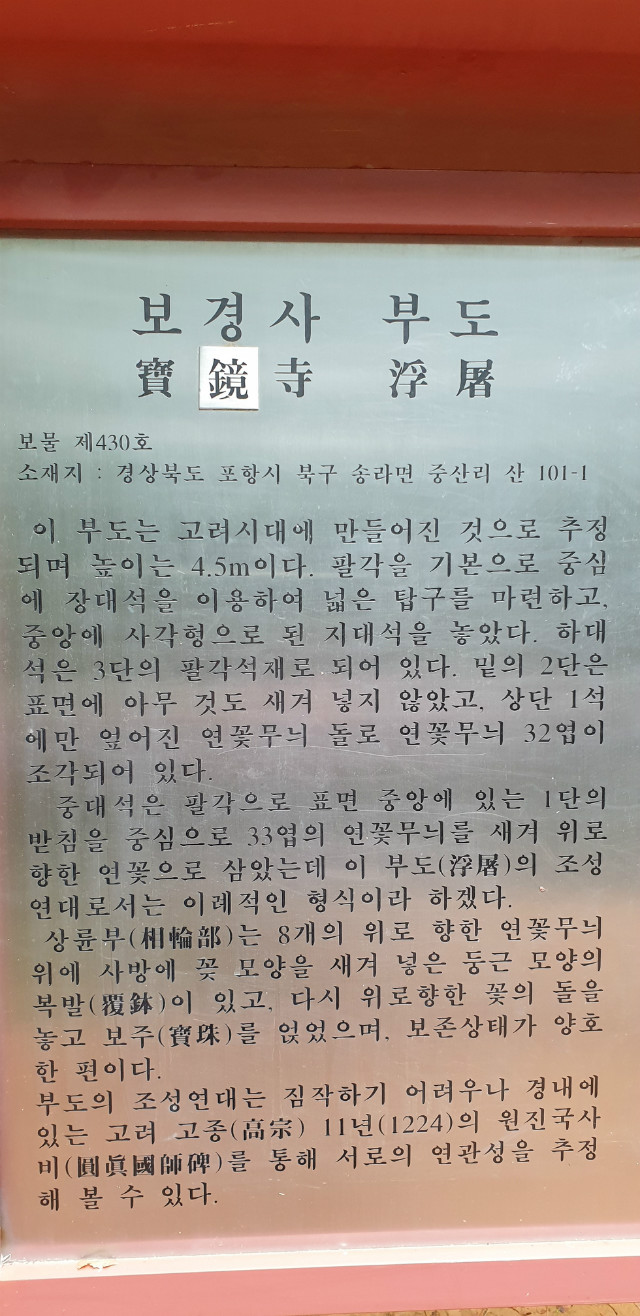 보경사 부도
寶鏡寺 浮屠
보물 제430호
소재지 : 경상북도 포항시 북구 송라면 중산리 산 101-1
이 부도는 고려시대에 만들어진 것으로 추정
되며 높이는 4.5m이다. 팔각을 기본으로 중심
에 장대석을 이용하여 넓은 탑구를 마련하고,
중앙에 사각형으로 된 지대석을 놓았다. 하대
석은 3단의 팔각석재로 되어 있다. 밑의 2단은
표면에 아무 것도 새겨 넣지 않았고, 상단 1석
에만 엎어진 연꽃무늬 돌로 연꽃무늬 32엽이
조각되어 있다.
중대석은 팔각으로 표면 중앙에 있는 1단의
받침을 중심으로 33엽의 연꽃무늬를 새겨 위로
향한 연꽃으로 삼았는데 이 부도(浮屠)의 조성
연대로서는 이례적인 형식이라 하겠다.
상륜부(相輪部)는 8개의 위로 향한 연꽃무늬
위에 사방에 꽃 모양을 새겨 넣은 둥근 모양의
복발(覆鉢)이 있고, 다시 위로향한 꽃의 돌을
놓고 보주(寶珠)를 얹었으며, 보존상태가 양호
한 편이다.
부도의 조성연대는 짐작하기 어려우나 경내에
있는 고려 고종(高宗) 11년(1224)의 원진국사
비(圓眞國師碑)를 통해 서로의 연관성을 추정
해 볼 수 있다.